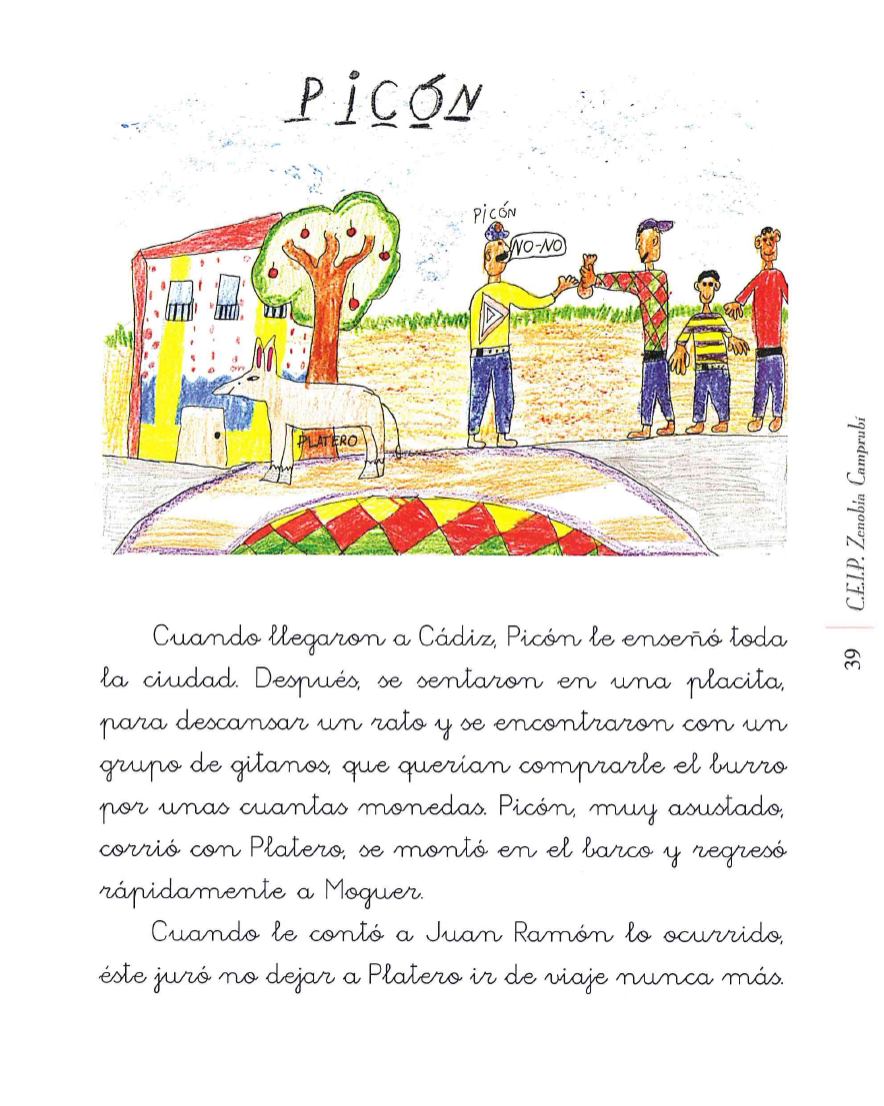 PICÓN
PICÓN
NO-NO
PLATERO
Cuando llegaron a Cádiz, Picón le enseñó toda
la ciudad. Después, se sentaron en una placita,
para descansar un rato y se encontraron con un
grupo de gitanos, que querían comprarle el burro
por unas cuantas monedas. Picón, muy asustado,
corrió con Platero, se montó en el barco y regresó
rápidamente a Moguer.
Cuando le contó a Juan Ramón lo ocurrido,
éste juró no dejar a Platero ir de viaje nunca más.
C.E.I.P. Zenobia Camprubí
39